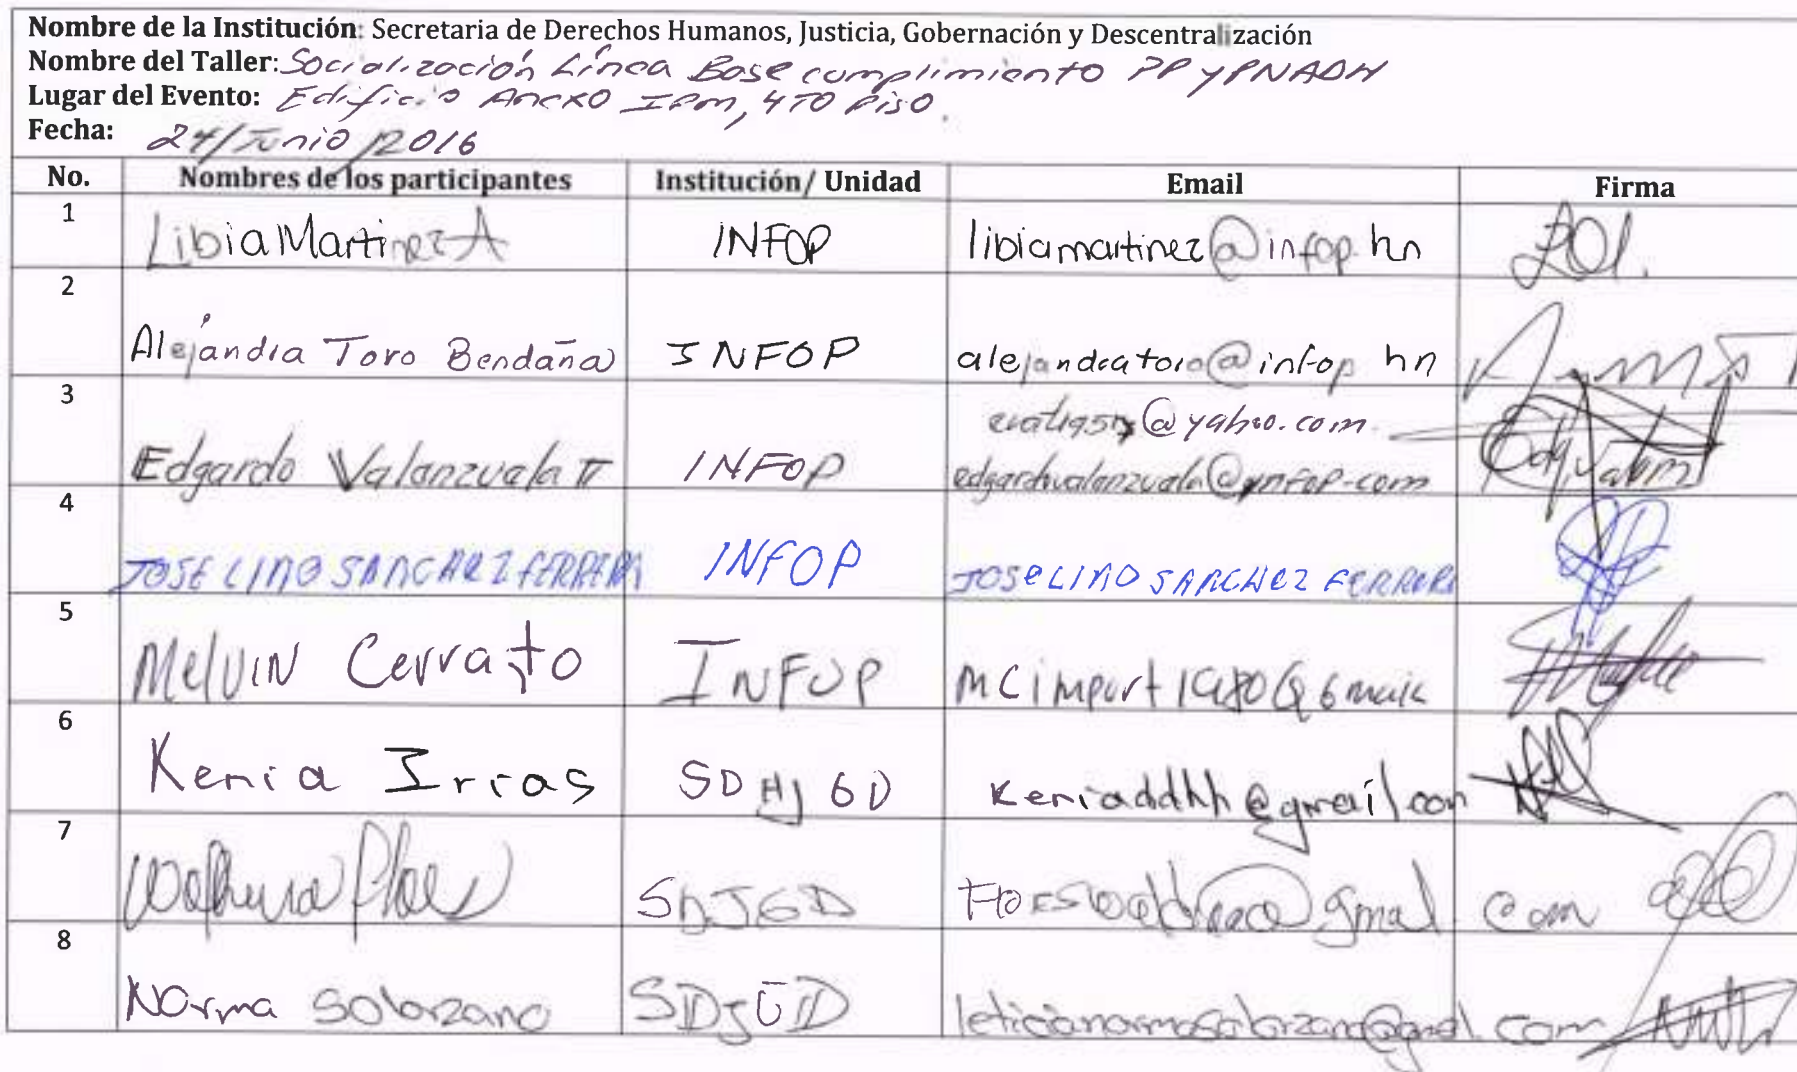 Nombre de la Institución: Secretaria de Derechos Humanos, Justicia, Gobernación y Descentralización
Nombre del Taller: Socialización Línea Base cumplimiento PP y PNADH
Lugar del Evento: Edificio Anexo IPM, 4TO Piso.
Fecha: 24/Junio/2016
No. Nombres de los participantes Institución/ Unidad Email Firma
1 Libia Martinez A INFOP libiamartinez@infop.hn
2 Alejandra Toro Bendaña INFOP alejandratoro@infop hn
3 Edgardo Valanzuala INFOP @yahoo.com
edgardovalanzuala@infop-com
4 JOSE LINO SANCHEZ FERRERA INFOP JOSELINO SANCHEZ FERRERA
5 Melvin Cerrato INFOP MCimport1980@Gmail
6 Kenia Irias SDHJGD Keniaddhh@gmail.com
7 SDJGD gmal com
8 Norma Solorzano SDJGD leticianormasolorzano@gmal.com